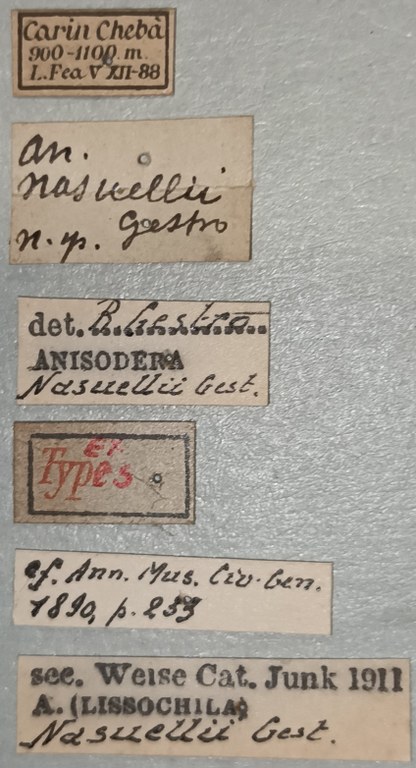 Carin Chebà
900-1100 m.
L. Fea V XII-88
An.
nasuellii
n. sp. Gestro
det. R. Gestro
ANISODERA
Nasuellii Gest.
Ex
Types
cf. Ann. Mus. Civ. Gen.
1890, p. 253
sec. Weise Cat. Junk 1911
A. (LISSOCHILA)
Nasuellii Gest.